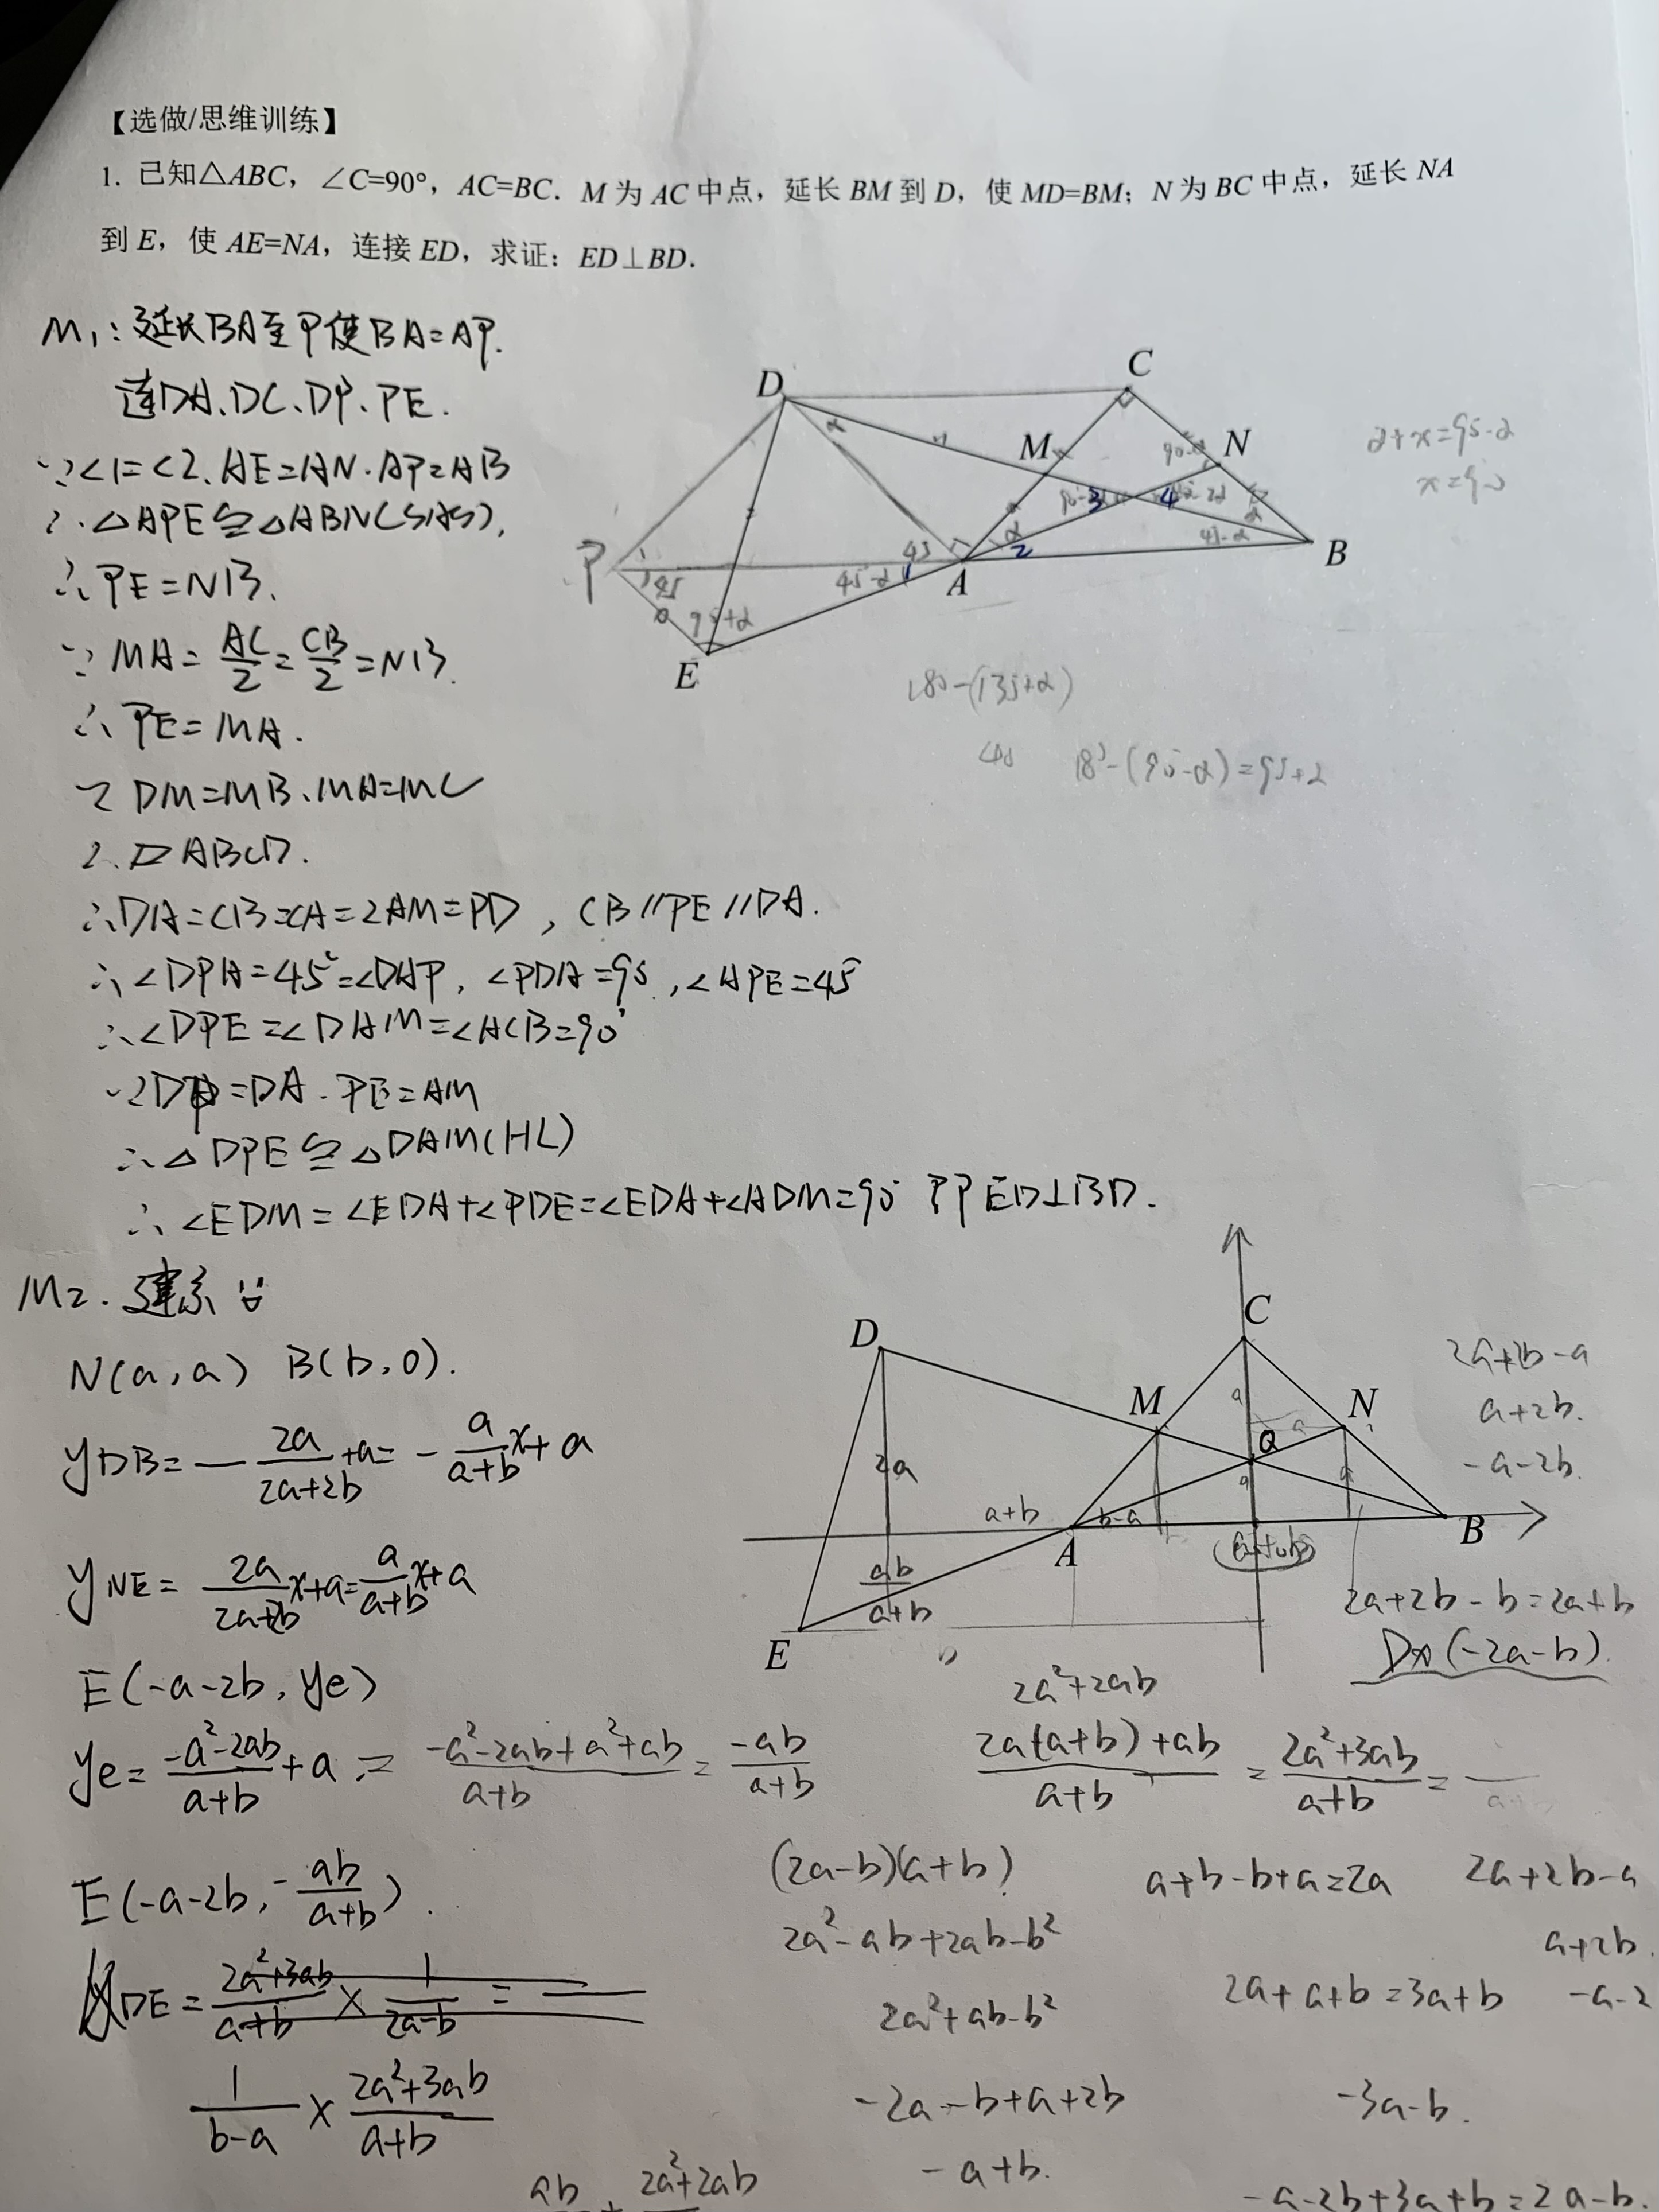 【选做/思维训练】
1. 已知△ABC，∠C=90°，AC=BC．M 为 AC 中点，延长 BM 到 D，使 MD=BM；N 为 BC 中点，延长 NA
到 E，使 AE=NA，连接 ED，求证：ED⊥BD．
M₁: 延长BA至P使BA=AP.
连DA、DC、DP、PE.
∵∠1=∠2、AE=AN、AP=AB
∴△APE≌△ABN(SAS),
∴PE=NB.
∵MA=AC/2=CB/2=NB.
∴PE=MA.
∵DM=MB、MA=MC
∴▱ABCD.
∴DA=CB=CA=2AM=PD，CB//PE//DA.
∴∠DPA=45°=∠DAP，∠PDA=90，∠APE=45
∴∠DPE=∠DAM=∠ACB=90°
∵DP=DA、PE=AM
∴△DPE≌△DAM(HL)
∴∠EDM=∠EDA+∠PDE=∠EDA+∠ADM=90° 即ED⊥BD.
D
C
M
N
P
A
B
E
α
1
2
3
4
45
45-α
90+α
180-(135+α)
180-(90-α)=90+α
α+x=90-α
M₂. 建系
N(a,a) B(b,0).
yDB=-2a/(2a+2b)+a=-a/(a+b)x+a
yNE=2a/(2a+2b)x+a=a/(a+b)x+a
E(-a-2b, ye)
ye=(-a²-2ab)/(a+b)+a=(-a²-2ab+a²+ab)/(a+b)=-ab/(a+b)
E(-a-2b,-ab/(a+b)).
DE=(2a²+3ab)/(a+b)×1/(2a-b)=
1/(b-a)×(2a²+3ab)/(a+b)
D
C
M
N
Q
A
B
E
2a
a
a
a
a
a+b
b-a
ab/(a+b)
2a+2b-a
a+2b.
-a-2b.
2a+2b-b=2a+b
Dx(-2a-b).
2a²+2ab
(2a(a+b)+ab)/(a+b)=(2a²+3ab)/(a+b)=
(2a-b)(a+b)
a+b-b+a=2a
2a+2b-a
2a²-ab+2ab-b²
a+2b.
2a²+ab-b²
2a+a+b=3a+b
-a-2
-2a-b+a+2b
-3a-b.
-a+b.
ab
2a²+2ab
-a-2b+3a+b=2a-b.